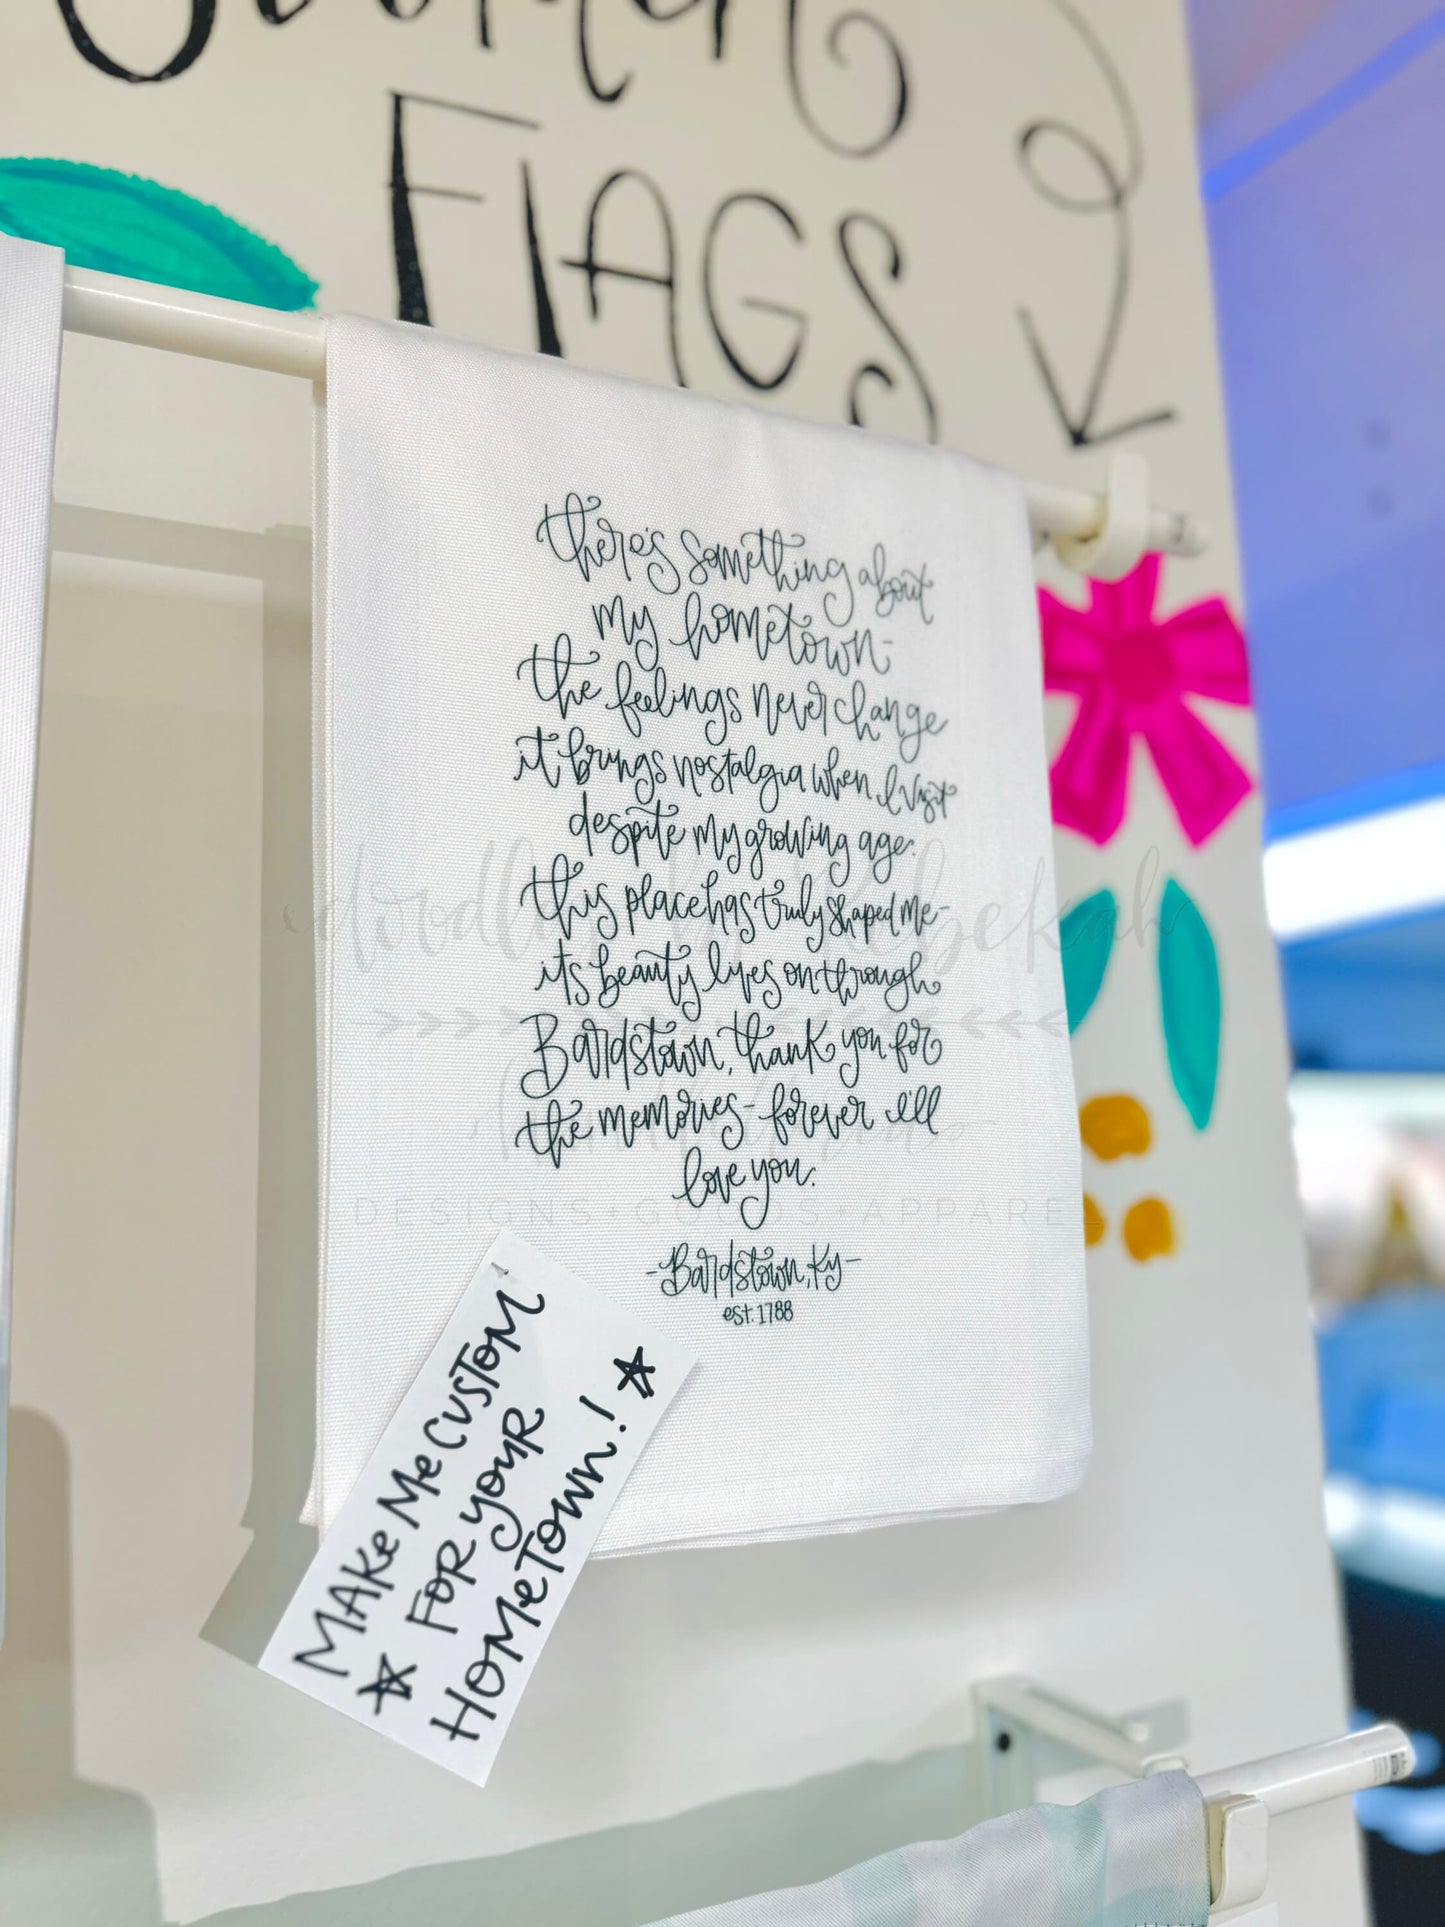 FlAGS
there's something about
my hometown-
the feelings never change
it brings nostalgia when I visit
despite my growing age.
this place has truly shaped me-
its beauty lives on through
Bardstown, thank you for
the memories - forever I'll
love you.
-Bardstown, Ky-
est. 1788
MAKe Me CUSTOM
FOR YOUR
HOMeTOWN!
doodles by Rebekah
DESIGNS + GOODS + APPAREL